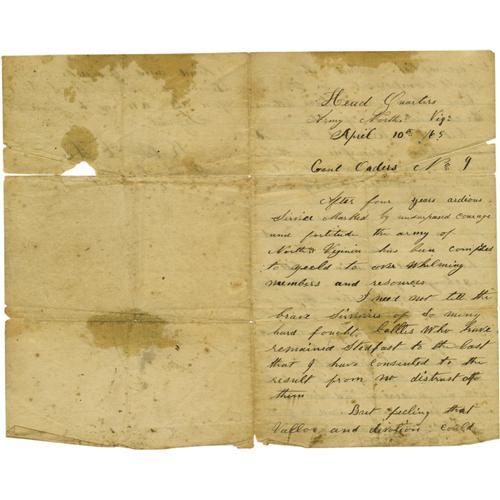 Head Quarters
Army North Vig:
April 10th /65
Genl Orders No 9
After four years ardious
Service Marked by unsurpassd courage
and fortitude the army of
North Virginia has been compled
to yeeld to over whilming
numbers and resources
I need not till the
brave Survivers of So many
hard fought battles Who have
remained Stedfast to the last
that I have consented to the
result from no distrust of
them
But feeling that
Vallor and divotion could